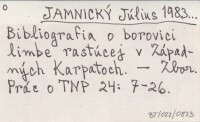 JAMNICKÝ Július 1983...
Bibliografia o borovici
limbe rastúcej v Západ-
ných Karpatoch. — Zbor.
Prác o TNP 24: 7-26.
87/022/0873